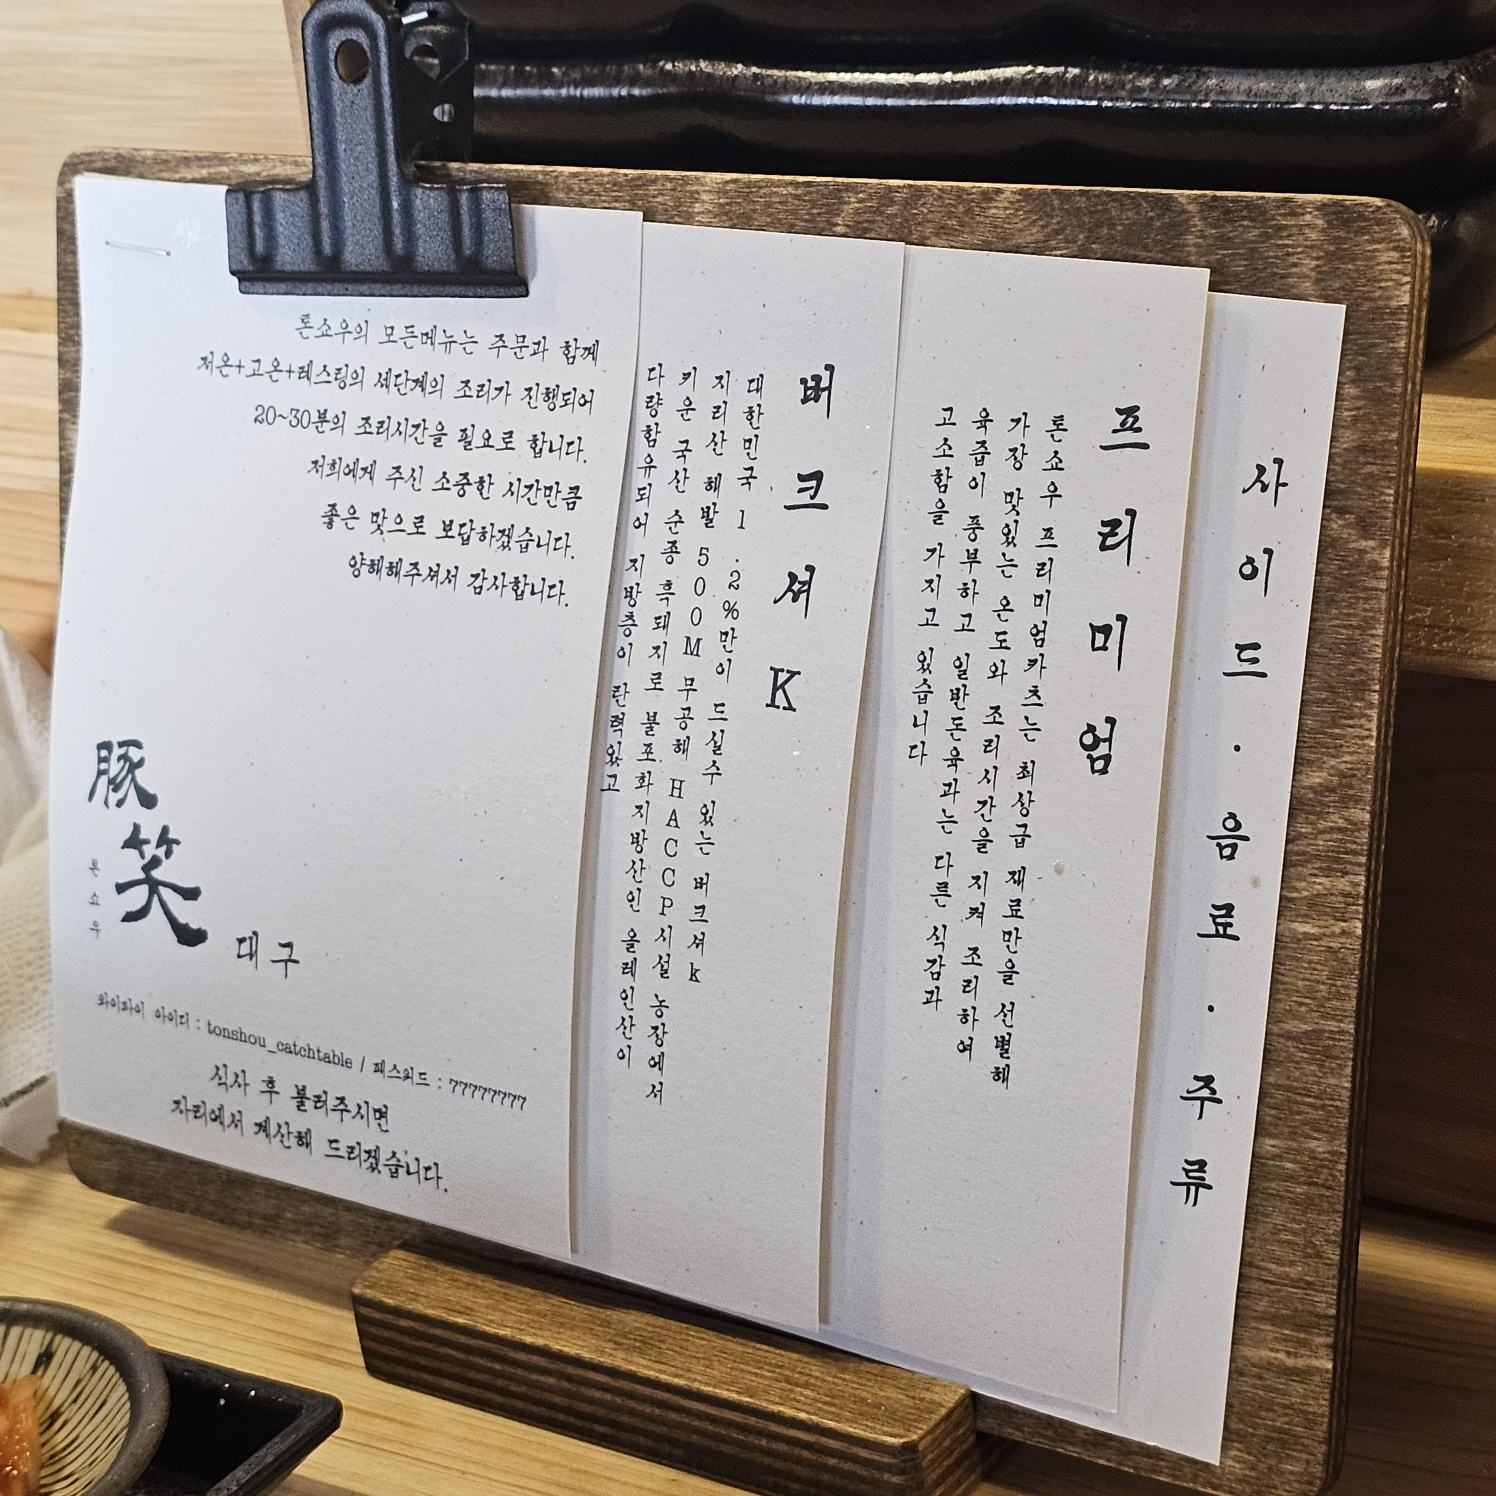 톤쇼우의 모든메뉴는 주문과 함께
저온+고온+레스팅의 세단계의 조리가 진행되어
20~30분의 조리시간을 필요로 합니다.
저희에게 주신 소중한 시간만큼
좋은 맛으로 보답하겠습니다.
양해해주셔서 감사합니다.
豚笑
톤쇼우
대구
와이파이 아이디 : tonshou_catchtable / 패스워드 : 77777777
식사 후 불러주시면
자리에서 계산해 드리겠습니다.
버크셔K
대한민국 1.2%만이 드실수 있는 버크셔k
지리산 해발 500M 무공해 HACCP시설 농장에서
키운 국산 순종 흑돼지로 불포화지방산인 올레인산이
다량함유되어 지방층이 탄력있고
프리미엄
톤쇼우 프리미엄카츠는 최상급 재료만을 선별해
가장 맛있는 온도와 조리시간을 지켜 조리하여
육즙이 풍부하고 일반돈육과는 다른 식감과
고소함을 가지고 있습니다
사이드·음료·주류